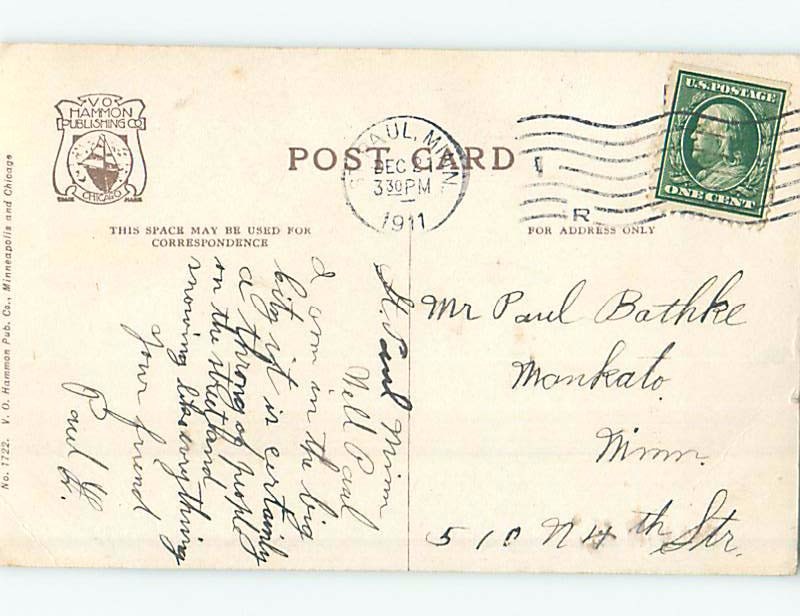 V O
HAMMON
PUBLISHING CO
CHICAGO
TRADE MARK
POST CARD
ST. PAUL, MINN.
DEC 2
3 30 PM
1911
R
U.S. POSTAGE
ONE CENT
THIS SPACE MAY BE USED FOR
CORRESPONDENCE
FOR ADDRESS ONLY
No. 1722. V. O. Hammon Pub. Co., Minneapolis and Chicago
St. Paul Minn
Well Paul
I am in the big
city it is certainly
a throng of people
on the street and
snowing like everything
your friend
Paul L.
Mr Paul Bathke
Mankato.
Minn.
510 N 4th Str.